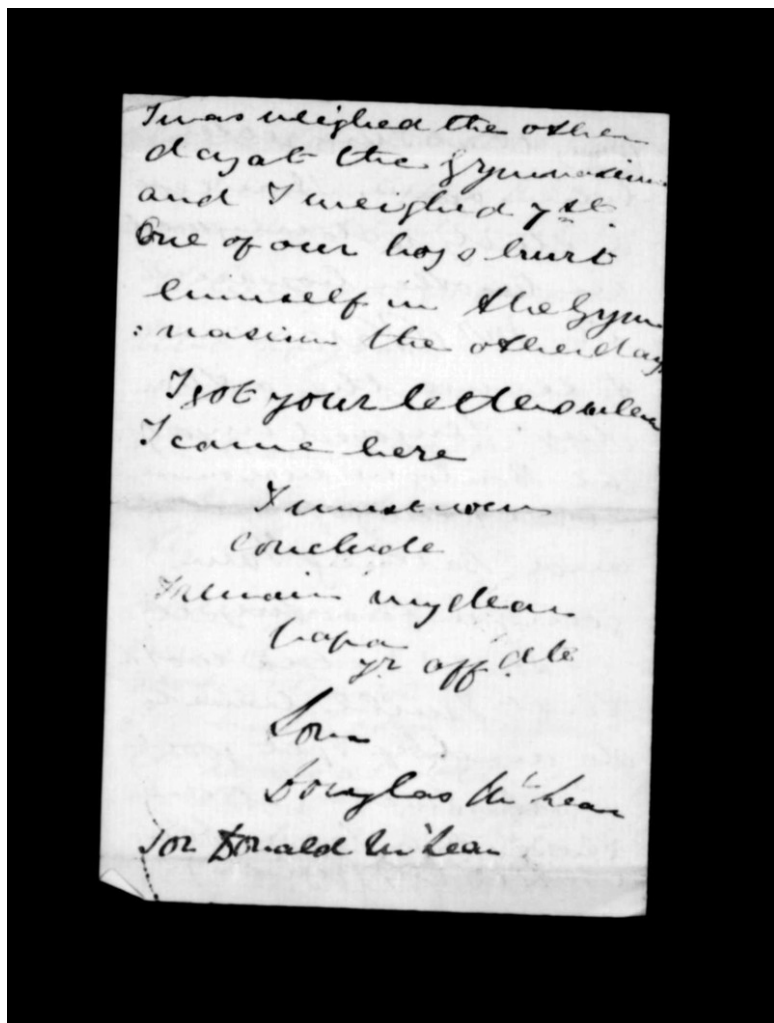 I was weighed the other
day at the gymnasium
and I weighed 7 st
One of our boys hurt
himself in the Gym
:nasium the other day
I got your letters when
I came here
I must now
conclude
I remain my dear
papa
yr aff ate
Son
Douglas McLean
For Donald McLean